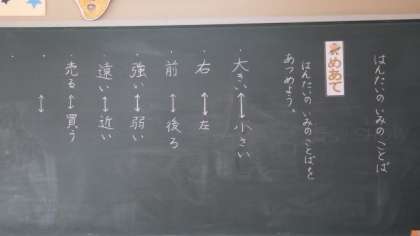 はんたいのいみのことば
めあて
はんたいのいみのことばを
あつめよう。
・大きい↔小さい
・右↔左
・前↔後ろ
・強い↔弱い
・遠い↔近い
・売る↔買う
・ ↔
・